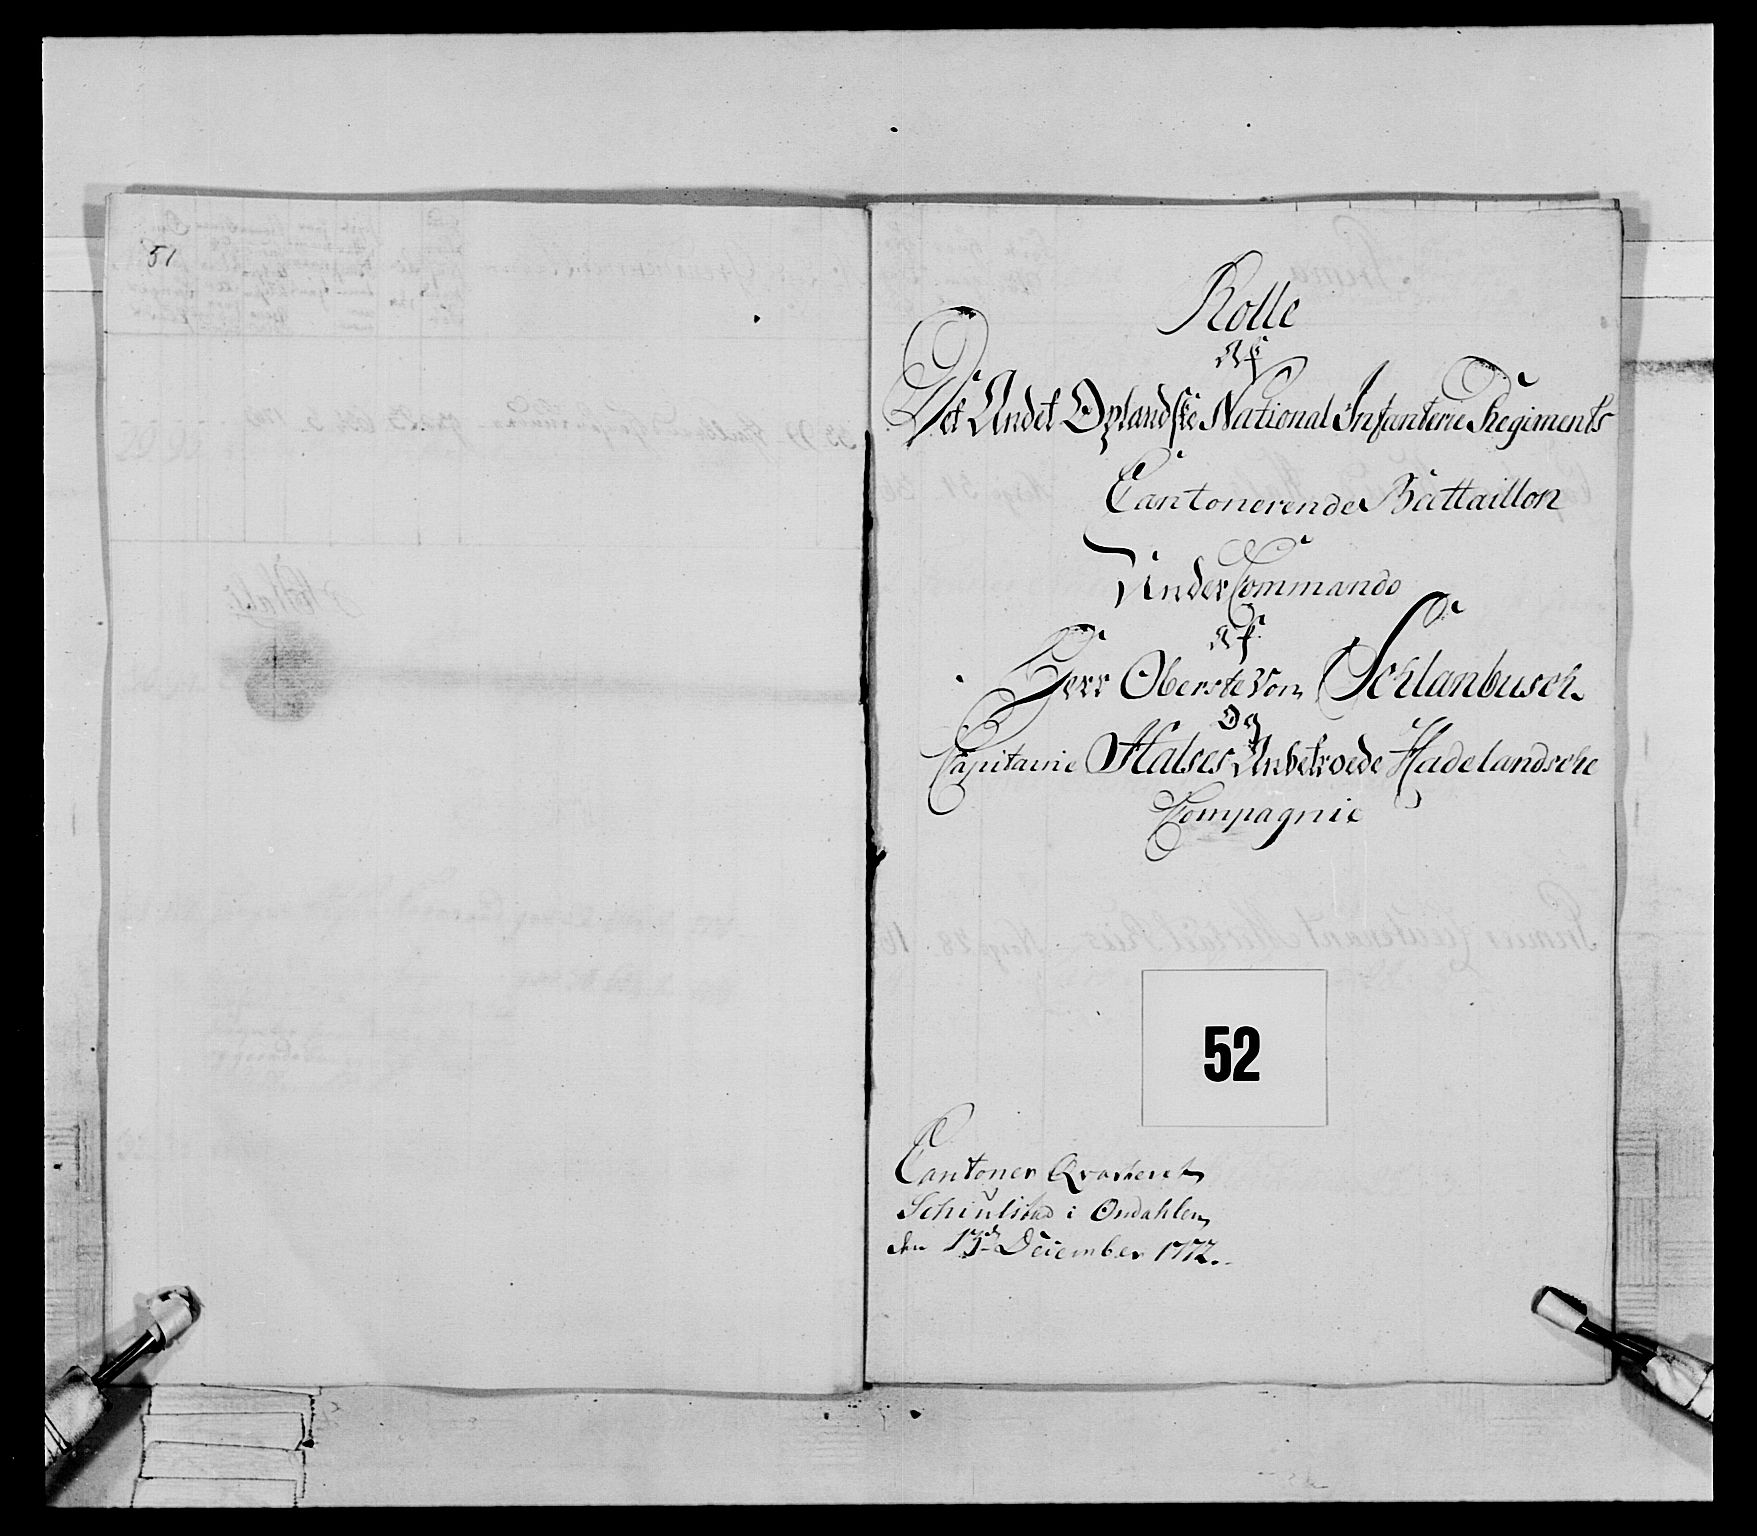 51
Rolle
Af
Det Andet Oplandske National Infanterie Regiments
Cantonerende Battaillon
Under Commando
af
Herr Oberste Von Schlanbusch
Og
Capitaine Halses Anbetroede Hadelandsche
Compagnie
52
Cantoner Qvarteret
i Ondahlen
den 13d December 1772.